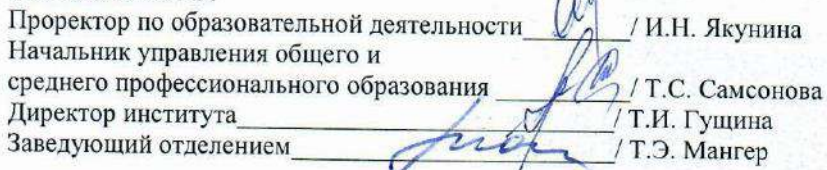 Проректор по образовательной деятельности________/ И.Н. Якунина
Начальник управления общего и
среднего профессионального образования ________/ Т.С. Самсонова
Директор института________/ Т.И. Гущина
Заведующий отделением________/ Т.Э. Мангер